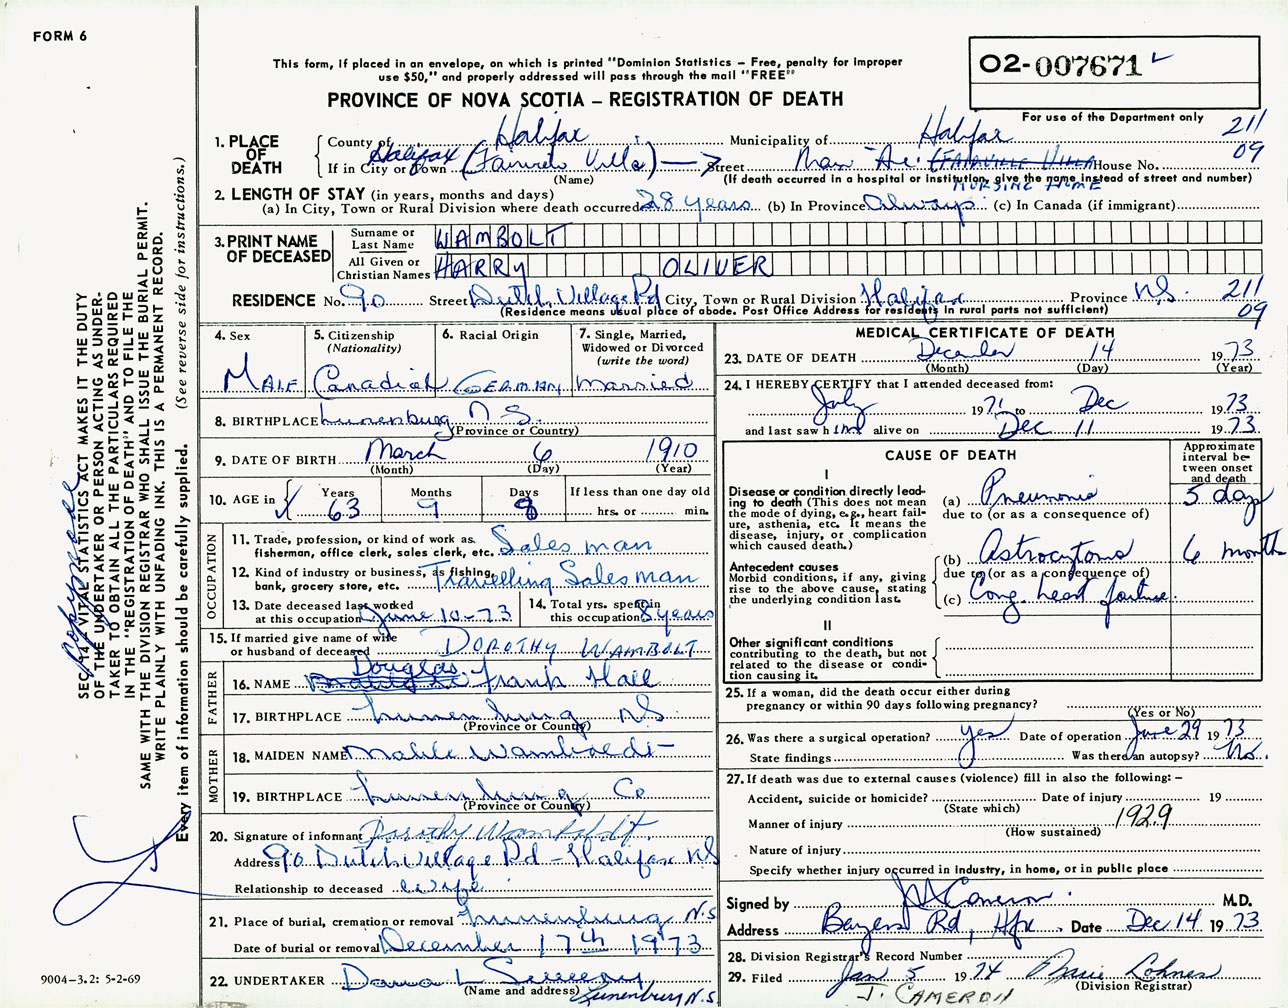 FORM 6
This form, if placed in an envelope, on which is printed "Dominion Statistics – Free, penalty for improper
use $50," and properly addressed will pass through the mail "FREE"
PROVINCE OF NOVA SCOTIA – REGISTRATION OF DEATH
O2-007671
For use of the Department only
211
09
1. PLACE OF DEATH
County of Halifax Municipality of Halifax
If in City or Town Halifax (Fairview Villa) Street Main Ave. (FAIRVILLE VILLA House No.
(Name) (If death occurred in a hospital or institution, give the name instead of street and number)
NURSING HOME
2. LENGTH OF STAY (in years, months and days)
(a) In City, Town or Rural Division where death occurred 28 years (b) In Province Always (c) In Canada (if immigrant)
3. PRINT NAME OF DECEASED
Surname or Last Name WAMBOLT
All Given or Christian Names HARRY OLIVER
RESIDENCE No. 90 Street Dutch Village Rd City, Town or Rural Division Halifax Province N.S. 211
(Residence means usual place of abode. Post Office Address for residents in rural parts not sufficient) 09
4. Sex MALE
5. Citizenship (Nationality) Canadian
6. Racial Origin GERMAN
7. Single, Married, Widowed or Divorced (write the word) Married
8. BIRTHPLACE Lunenburg N.S.
(Province or Country)
9. DATE OF BIRTH March 6 1910
(Month) (Day) (Year)
10. AGE in Years 63 Months 9 Days 8 If less than one day old
hrs. or min.
OCCUPATION
11. Trade, profession, or kind of work as
fisherman, office clerk, sales clerk, etc. Sales man
12. Kind of industry or business, as fishing,
bank, grocery store, etc. Travelling Sales man
13. Date deceased last worked
at this occupation June 10-73
14. Total yrs. spent in
this occupation 8 years
15. If married give name of wife
or husband of deceased DOROTHY WAMBOLT
FATHER
Douglas
16. NAME Frank Hall
17. BIRTHPLACE Lunenburg N.S.
(Province or Country)
MOTHER
18. MAIDEN NAME Mable Wamboldt
19. BIRTHPLACE Lunenburg Co
(Province or Country)
20. Signature of informant Dorothy Wamboldt
Address 90 Dutch Village Rd - Halifax NS
Relationship to deceased Wife
21. Place of burial, cremation or removal Lunenburg N.S
Date of burial or removal December 17th 1973
22. UNDERTAKER Sweeny
(Name and address) Lunenburg N.S
MEDICAL CERTIFICATE OF DEATH
23. DATE OF DEATH December 14 1973
(Month) (Day) (Year)
24. I HEREBY CERTIFY that I attended deceased from:
July 1971 to Dec 1973
and last saw him alive on Dec 11 1973
CAUSE OF DEATH
Approximate interval between onset and death
I
Disease or condition directly leading to death (This does not mean the mode of dying, e.g., heart failure, asthenia, etc. It means the disease, injury, or complication which caused death.)
(a) Pneumonia 5 days
due to (or as a consequence of)
Antecedent causes
Morbid conditions, if any, giving rise to the above cause, stating the underlying condition last.
(b) Astrocytoma 6 month
due to (or as a consequence of)
(c) Cong. heart failure.
II
Other significant conditions
contributing to the death, but not related to the disease or condition causing it.
25. If a woman, did the death occur either during
pregnancy or within 90 days following pregnancy?
(Yes or No)
26. Was there a surgical operation? yes Date of operation June 29 1973
State findings Was there an autopsy? No.
27. If death was due to external causes (violence) fill in also the following: –
Accident, suicide or homicide? Date of injury 19
(State which)
Manner of injury 1929
(How sustained)
Nature of injury
Specify whether injury occurred in industry, in home, or in public place
Signed by J Cameron M.D.
Address Bayers Rd, Hfx Date Dec 14 1973
28. Division Registrar's Record Number
29. Filed Jan 5 1974 Marie Lohnes
(Division Registrar)
J. CAMERON
SEC. 14. VITAL STATISTICS ACT MAKES IT THE DUTY
OF THE UNDERTAKER OR PERSON ACTING AS UNDERTAKER TO OBTAIN ALL THE PARTICULARS REQUIRED
IN THE "REGISTRATION OF DEATH" AND TO FILE THE
SAME WITH THE DIVISION REGISTRAR WHO SHALL ISSUE THE BURIAL PERMIT.
WRITE PLAINLY WITH UNFADING INK. THIS IS A PERMANENT RECORD.
Every item of information should be carefully supplied. (See reverse side for instructions.)
9004–3.2: 5-2-69